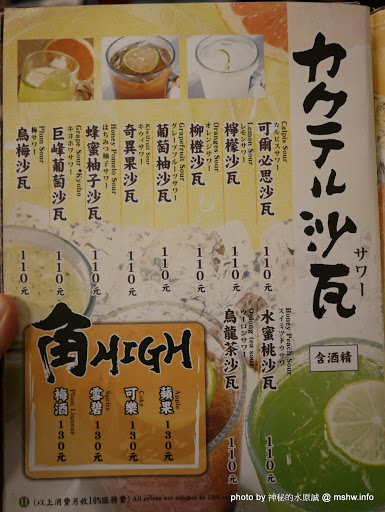 カクテル沙瓦
サワー
含酒精
Calpis Sour
カルピスサワー
可爾必思沙瓦
110元
Lemon Sour
レモンサワー
檸檬沙瓦
110元
Oranges Sour
オレンジサワー
柳橙沙瓦
110元
Grapefruit Sour
グレープフルーツサワー
葡萄柚沙瓦
110元
Kiwifruit Sour
キウイサワー
奇異果沙瓦
110元
Honey Pomelo Sour
はちみつ柚子サワー
蜂蜜柚子沙瓦
110元
Grape Sour
巨峰葡萄沙瓦
110元
Plum Sour
梅サワー
烏梅沙瓦
110元
Honey Peach Sour
水蜜桃沙瓦
110元
Oolong tea Sour
ウーロンサワー
烏龍茶沙瓦
110元
角HIGH
Apple
蘋果
130元
Coke
可樂
130元
Sprite
雪碧
130元
Plum Liqueur
梅酒
130元
11
(以上消費另收10%服務費) All prices are subject to 10%
photo by 神秘的水原誠 @ mshw.info